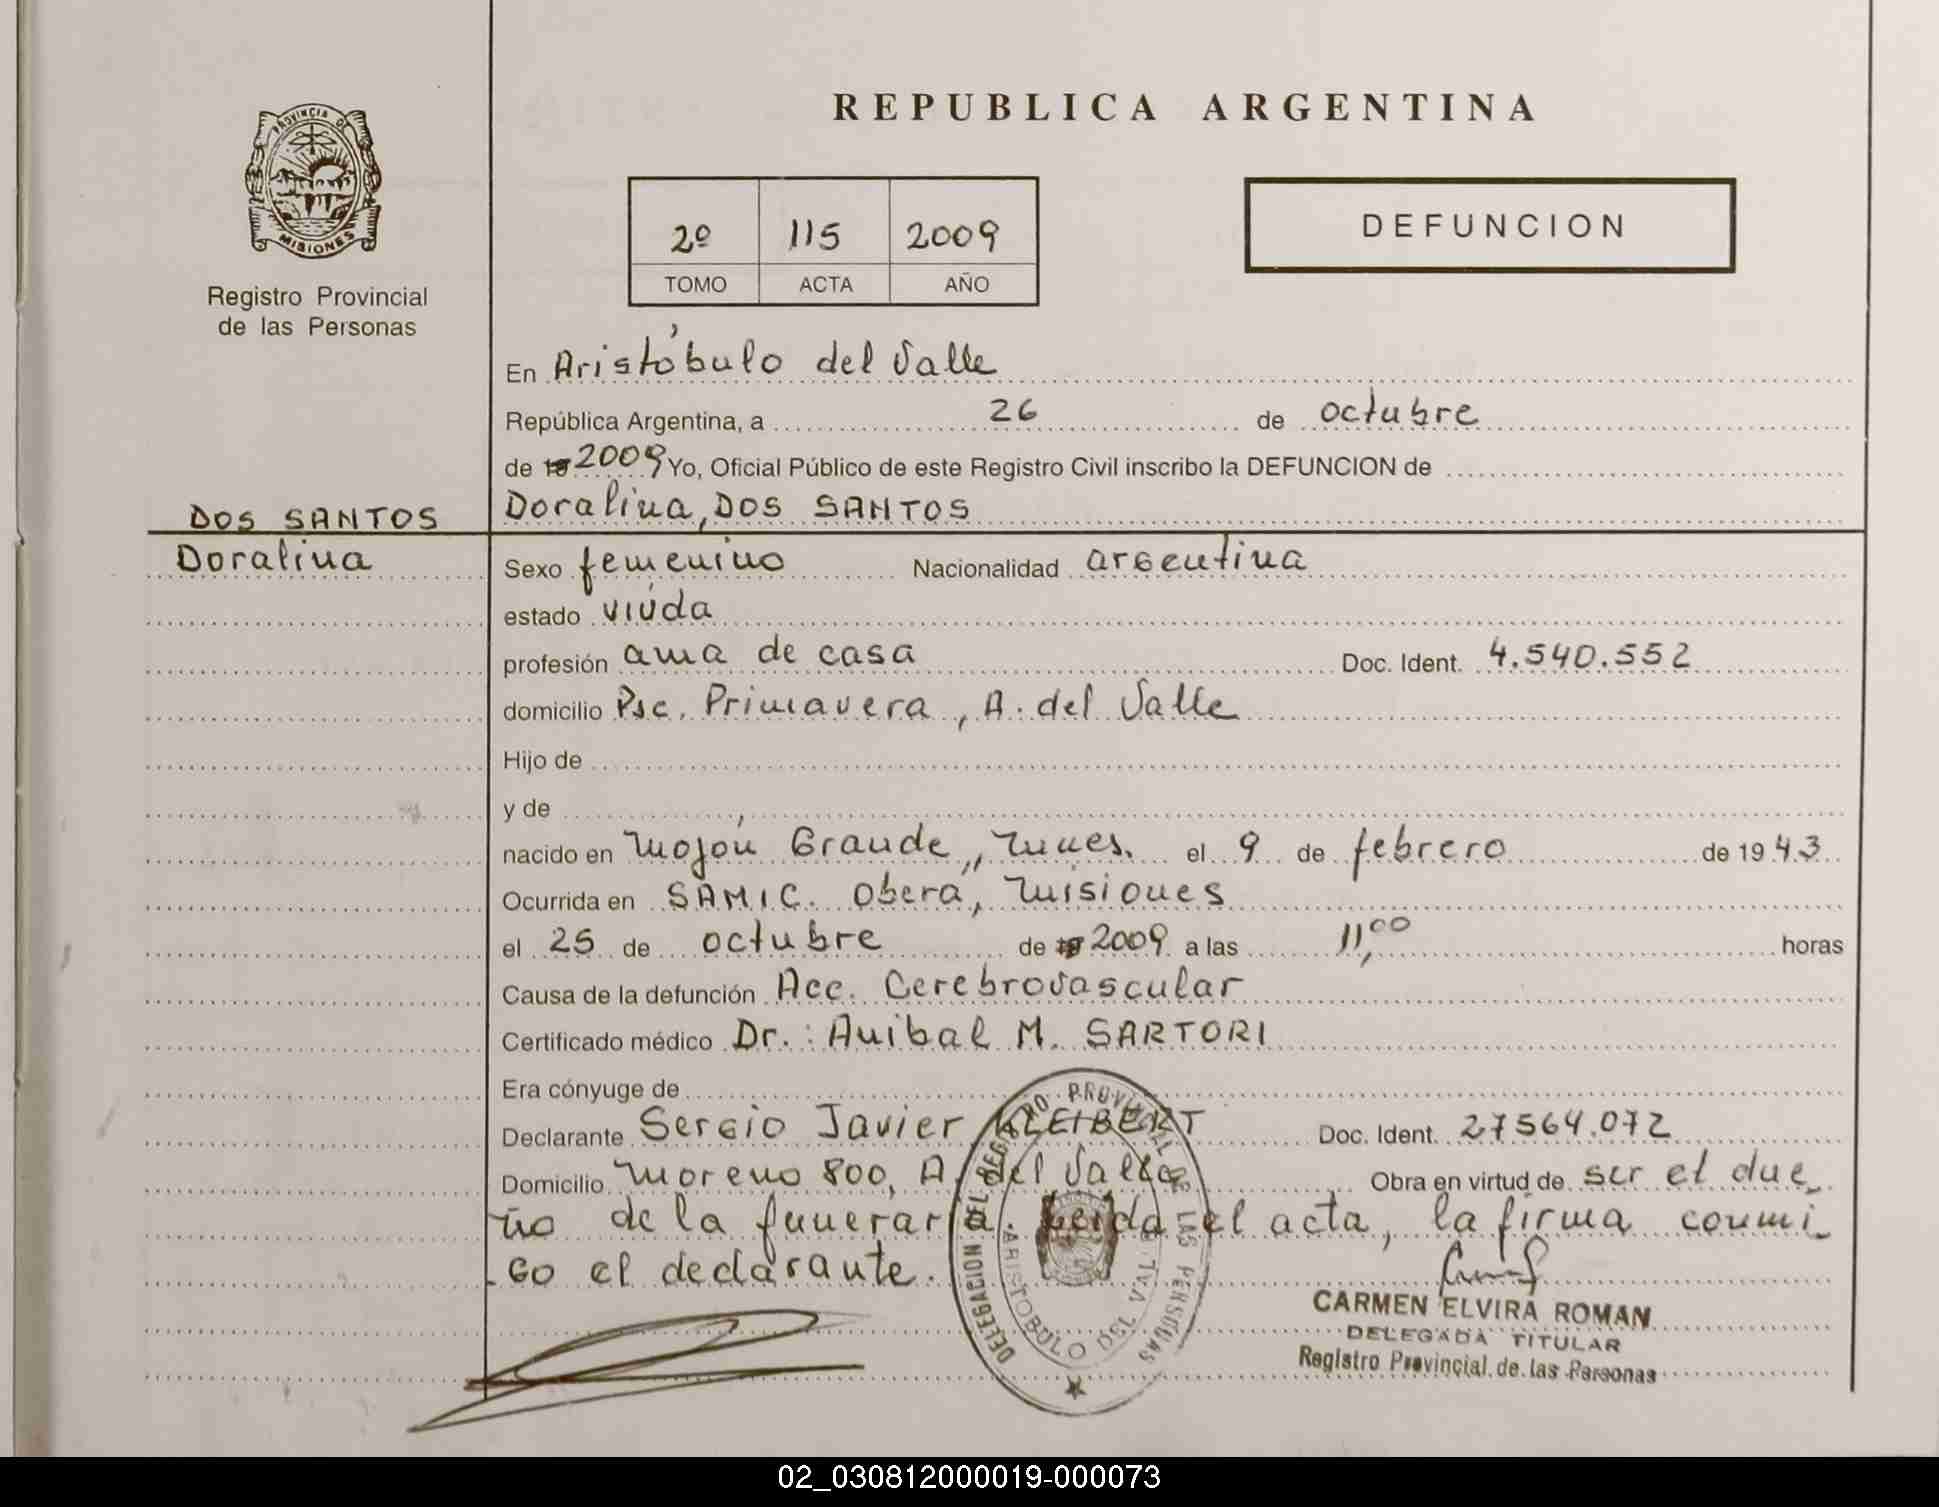 REPUBLICA ARGENTINA
PROVINCIA DE
MISIONES
Registro Provincial
de las Personas
2º 115 2009
TOMO ACTA AÑO
DEFUNCION
En Aristóbulo del Valle
República Argentina, a 26 de octubre
de 19 2009 Yo, Oficial Público de este Registro Civil inscribo la DEFUNCION de
DOS SANTOS
Doralina
Doralina, DOS SANTOS
Sexo femenino Nacionalidad argentina
estado viúda
profesión ama de casa Doc. Ident. 4.540.552
domicilio Psc. Primavera, A. del Valle
Hijo de
y de
nacido en Mojón Grande, Mnes. el 9 de febrero de 1943
Ocurrida en SAMIC. Oberá, Misiones
el 25 de octubre de 19 2009 a las 11,00 horas
Causa de la defunción Acc. Cerebrovascular
Certificado médico Dr.: Anibal M. SARTORI
Era cónyuge de
Declarante Sergio Javier KLEIBERT Doc. Ident. 27564.072
Domicilio Moreno 800, A. del Valle Obra en virtud de ser el due
ño de la funeraria. Leida el acta, la firma conmi
go el declarante.
DELEGACION DEL REGISTRO PROVINCIAL DE LAS PERSONAS
ARISTOBULO DEL VALLE
CARMEN ELVIRA ROMAN
DELEGADA TITULAR
Registro Provincial de las Personas
02_030812000019-000073